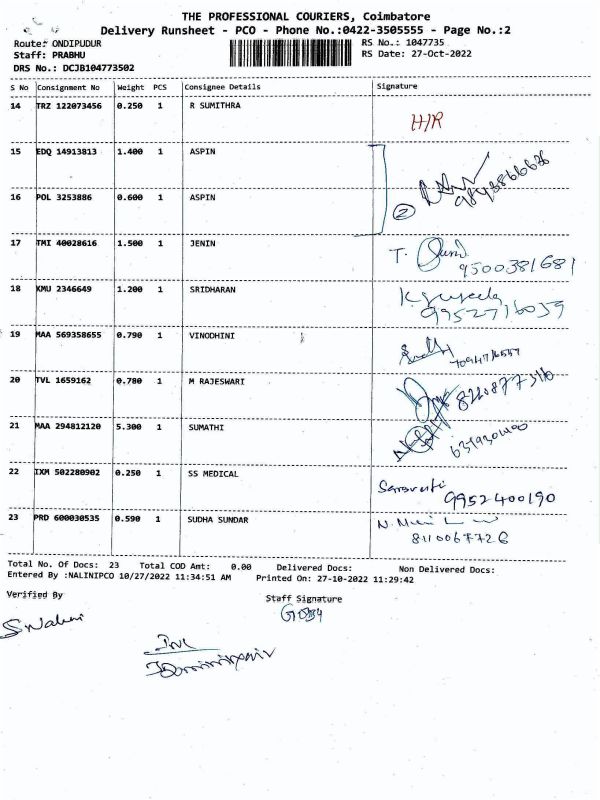 THE PROFESSIONAL COURIERS, Coimbatore
Delivery Runsheet - PCO - Phone No.:0422-3505555 - Page No.:2
Route: ONDIPUDUR
RS No.: 1047735
Staff: PRABHU
RS Date: 27-Oct-2022
DRS No.: DCJB104773502
S No Consignment No Weight PCS Consignee Details Signature
14 TRZ 122073456 0.250 1 R SUMITHRA H/R
15 EDQ 14913813 1.400 1 ASPIN
16 POL 3253886 0.600 1 ASPIN 2
17 TMI 40028616 1.500 1 JENIN T. 9500381681
18 KMU 2346649 1.200 1 SRIDHARAN 9952716039
19 MAA 569358655 0.790 1 VINODHINI
20 TVL 1659162 0.780 1 M RAJESWARI
21 MAA 294812120 5.300 1 SUMATHI
22 IXM 502280902 0.250 1 SS MEDICAL 9952400190
23 PRD 600030535 0.590 1 SUDHA SUNDAR
Total No. Of Docs: 23 Total COD Amt: 0.00 Delivered Docs: Non Delivered Docs:
Entered By :NALINIPCO 10/27/2022 11:34:51 AM Printed On: 27-10-2022 11:29:42
Verified By
Staff Signature